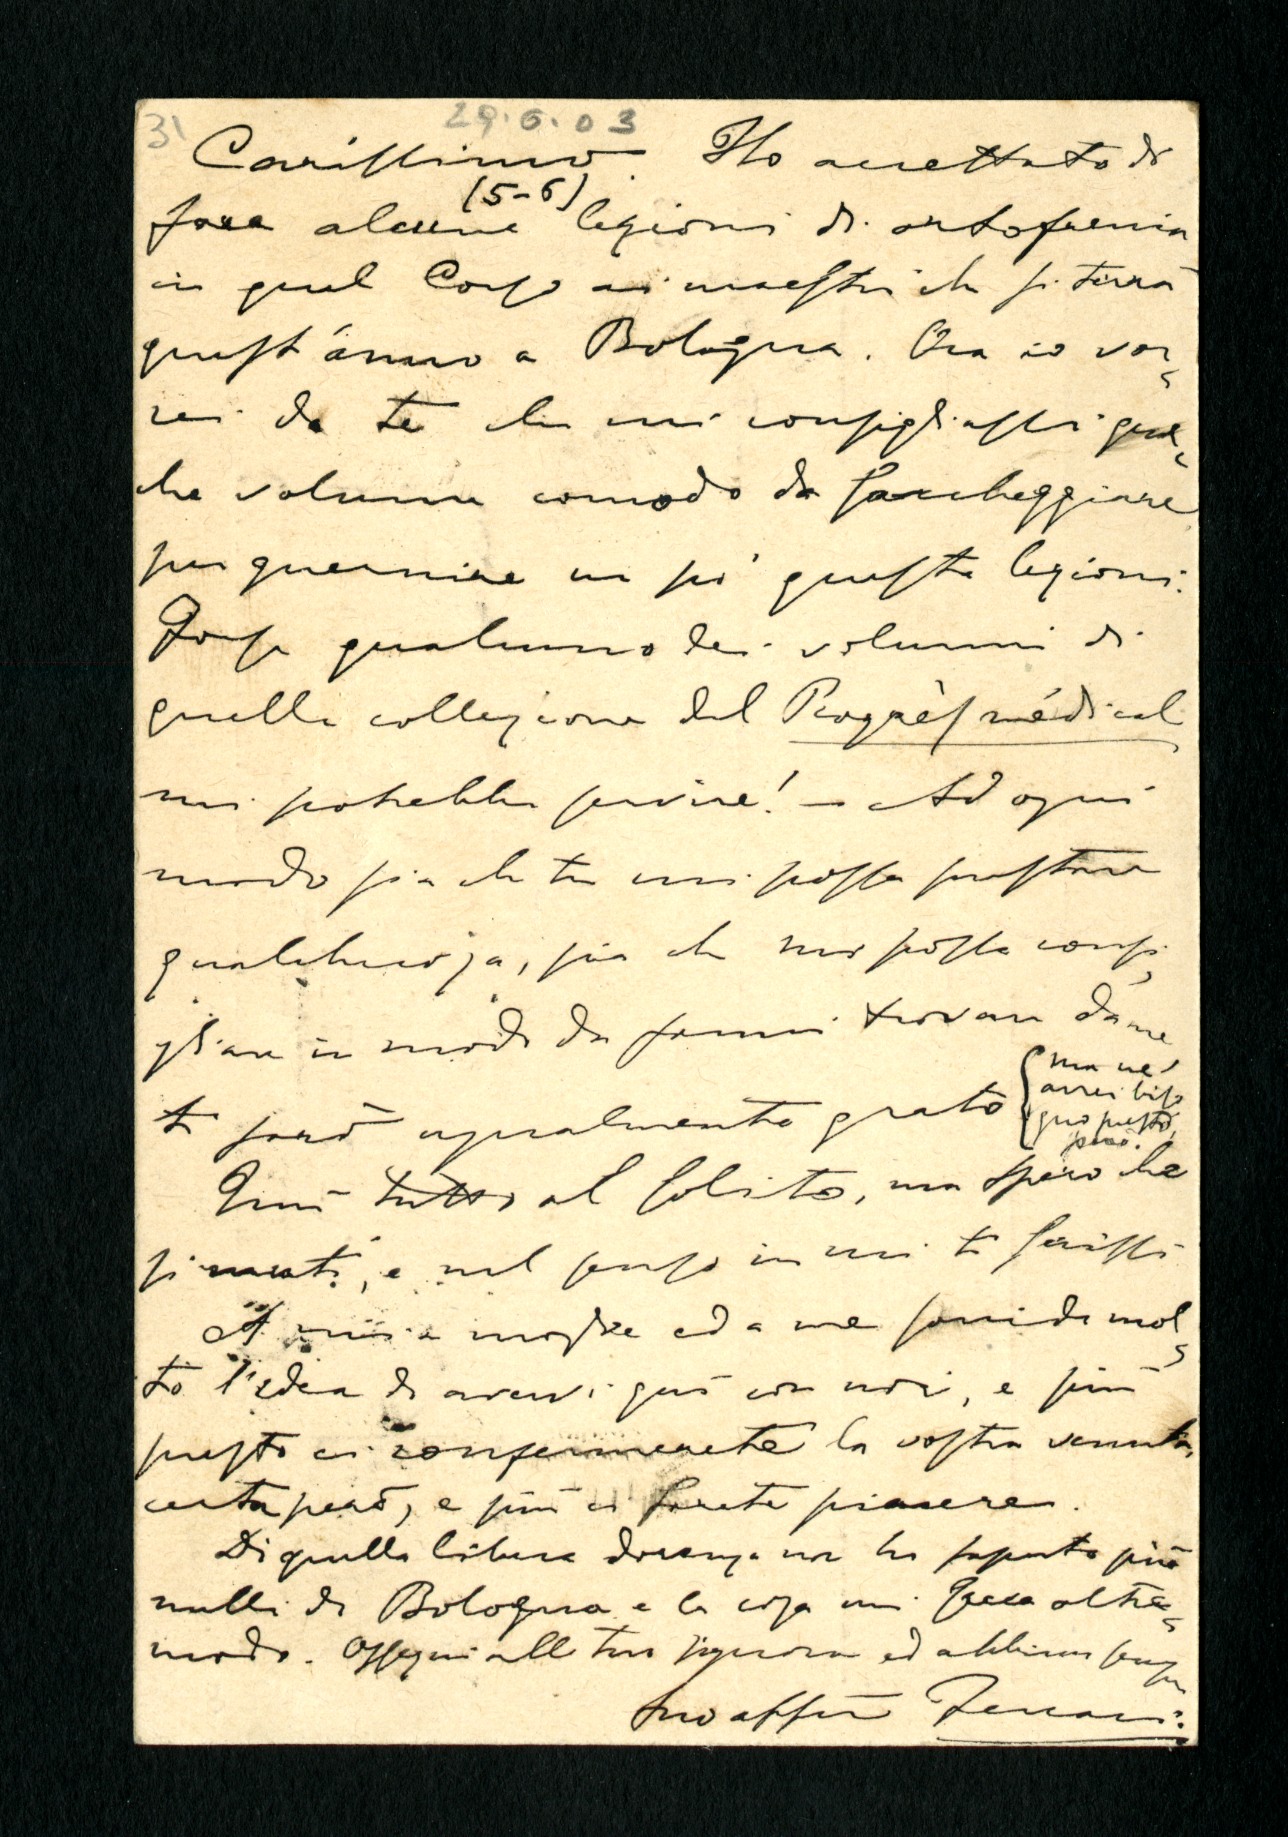 31
29.6.03
Carissimo. Ho accettato di
fare alcune (5-6) lezioni di ortofrenia
in quel Corso ai maestri che si terrà
quest'anno a Bologna. Ora io vor-
rei da te che mi consigliassi qual-
che volume comodo da saccheggiare
per guernire un po' queste lezioni.
Forse qualcuno dei volumi di
quella collezione del Progrès médical
mi potrebbe servire! — Ad ogni
modo sia che tu mi possa prestare
qualche cosa, sia che mi possa consi-
gliare in modo da farmi trovare da me
ti sarò ugualmente grato {ma ne
avrei biso
gno presto,
però.
Qui tutto al solito, ma spero che
si muti, e nel senso in cui ti scrissi
A mia moglie ed a me sorride mol-
to l'idea di avervi qui con noi, e più
presto ci confermerete la vostra venuta,
certa però, e più ci farete piacere.
Di quella libera docenza non ho saputo più
nulla di Bologna e la cosa mi secca oltre-
modo. Ossequi alla tua signora ed abbimi sempre
tuo affmo Ferrari.